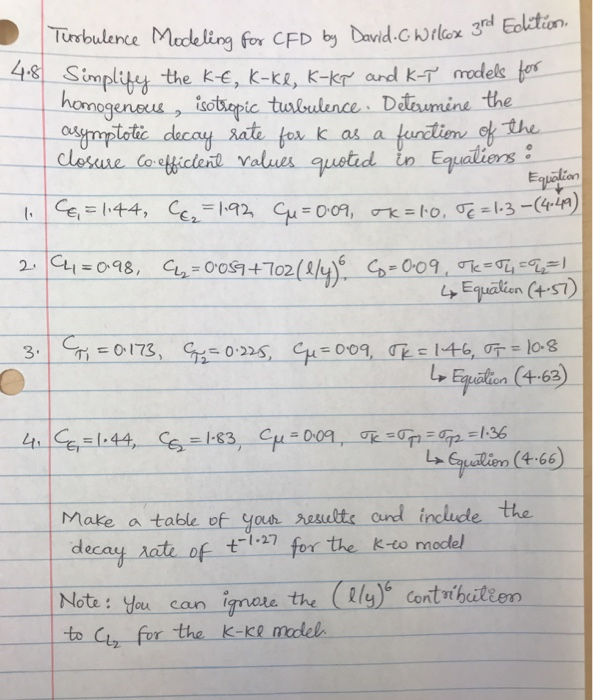 Turbulence Modeling for CFD by David.C.Wilcox 3rd Edition.
4.8 Simplify the K-ϵ, K-Kℓ, K-Kτ and K-τ models for
homogenous, isotropic turbulence. Determine the
asymptotic decay rate for K as a function of the
closure Co-efficient values quoted in Equations:
Equation
↓
1. Cϵ₁ = 1.44, Cϵ₂ = 1.92 Cμ = 0.09, σK = 1.0, σϵ = 1.3 - (4.49)
2. CL1 = 0.98, CL2 = 0.059 + 702 (ℓ/y)⁶, CD = 0.09, σK = σL1 = σL2 = 1
↳ Equation (4.57)
3. Cτ1 = 0.173, Cτ2 = 0.225, Cμ = 0.09, σK = 1.46, στ = 10.8
↳ Equation (4.63)
4. Cϵ₁ = 1.44, Cϵ₂ = 1.83, Cμ = 0.09, σK = στ1 = στ2 = 1.36
↳ Equation (4.66)
Make a table of your results and include the
decay rate of t⁻¹·²⁷ for the K-ω model
Note: You can ignore the (ℓ/y)⁶ contribution
to CL2 for the K-Kℓ model.